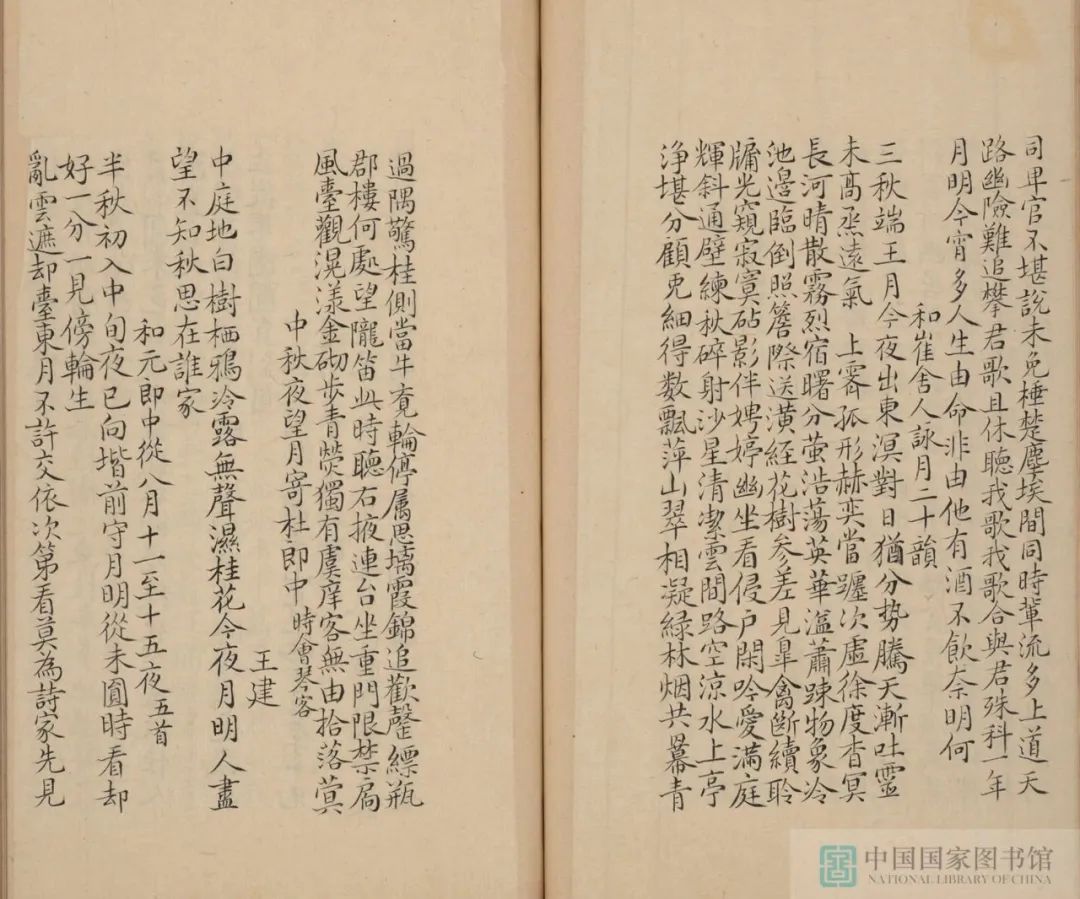 司卑官不堪說未免棰楚塵埃間同時輩流多上道天
路幽險難追攀君歌且休聽我歌我歌合與君殊科一年
月明今宵多人生由命非由他有酒不飲奈明何
和崔舍人詠月二十韻
三秋端王月今夜出東溟對日猶分势騰天漸吐靈
未髙烝遠氣 上霽孤形赫奕當躔次虛徐度杳冥
長河晴散霧烈宿曙分萤浩蕩英華溢蕭踈物象泠
池邊臨倒照簷際送潢経花樹参差見皐禽斷續聆
牗光窺寂寞砧影伴娉婷幽坐看侵户閑吟愛滿庭
輝斜通壁練秋碎射沙星清潔雲間路空涼水上亭
浄堪分顧兎細得数飄萍山翠相凝緑林烟共幕青
過隅驚桂側當午竟輪停属思摛霞錦追歡罄縹瓶
郡樓何處望隴笛此時聽右掖連台坐重門限禁扃
風臺觀滉漾金砌步青熒獨有虞庠客無由拾落蓂
中秋夜望月寄杜郎中 時會琴客
王建
中庭地白樹栖鴉泠露無聲濕桂花今夜月明人盡
望不知秋思在誰家
和元郎中從八月十一至十五夜 五首
半秋初入中旬夜已向堦前守月明從未圓時看却
好一分一見傍輪生
亂雲遮却臺東月不許交依次第看莫為詩家先見
中国国家图书馆
NATIONAL LIBRARY OF CHINA